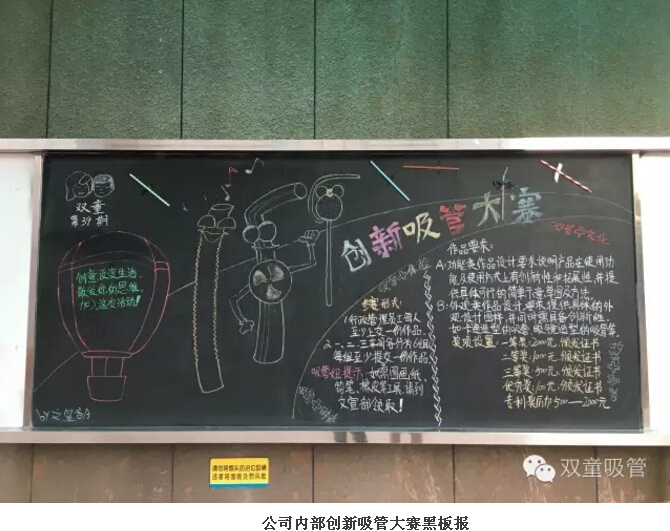 双童
第39期
创意改变生活,
散发你的思维,
加入这次活动!
by文宣部
创新吸管大赛
参赛形式:
1行政管理层每人
至少上交一份作品.
2一、二、三车间各分为6组
每组至少提交一份作品.
吸管妞提示:如需图画纸、
铅笔、橡皮等工具,请到
文宣部领取!
作品要求:
A:功能类作品设计要求说明产品在使用功
能及使用方式上有创新性和拓展性,并提
供具体可行的简单示意图及方法.
B:外观类作品设计要求提供具体的外
观设计图样,并同时须具备创新性.
如卡通造型的吸管、眼镜造型的吸管等.
奖项设置:一等奖:2000元、颁发证书
二等奖:1000元、颁发证书
三等奖:500元、颁发证书
优胜奖:100元、颁发证书
专利奖励500——2000元
双童吸管
公司内部创新吸管大赛黑板报